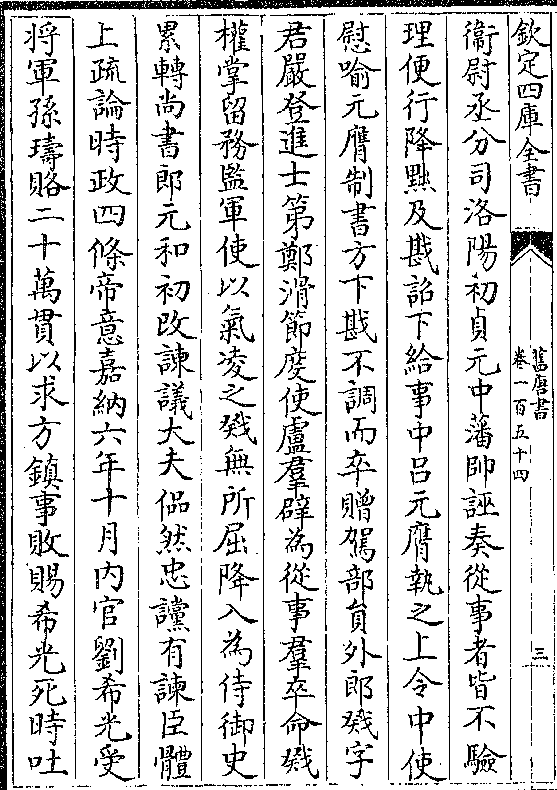 欽定四庫全書
舊唐書
卷一百五十四
三
衞尉丞分司洛陽初貞元中藩帥誣奏從事者皆不驗
理便行降黜及戡詔下給事中呂元膺執之上令中使
慰喻元膺制書方下戡不調而卒贈駕部員外郎戣字
君嚴登進士第鄭滑節度使盧羣辟為從事羣卒命戣
權掌留務監軍使以氣凌之戣無所屈降入為侍御史
累轉尚書郎元和初改諫議大夫侃然忠讜有諫臣體
上疏論時政四條帝意嘉納六年十月內官劉希光受
將軍孫璹賂二十萬貫以求方鎮事敗賜希光死時吐